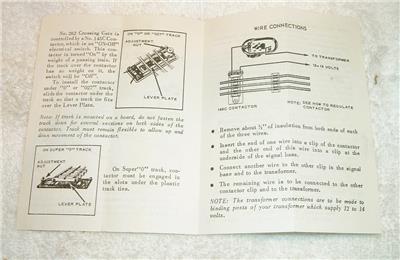 No. 262 Crossing Gate is
controlled by a No. 145C Con-
tactor, which is an "ON-Off"
electrical switch. This con-
tactor is turned "On" by the
weight of a passing train. If
the track over the contactor
has no weight on it, the
switch will be "Off".
To install the contactor
under "0" or "027" track,
slide the contactor under the
track so that a track tie fits
over the Lever Plate.
ON "O" OR "027" TRACK
ADJUSTMENT
NUT
LEVER PLATE
Note: If track is mounted on a board, do not fasten the
track down for several sections on both sides of the
contactor. Track must remain flexible to allow up and
down movement of the contactor.
ON SUPER "O" TRACK
ADJUSTMENT
NUT
LEVER PLATE
On Super "0" track, con-
tactor must be engaged in
the slots under the plastic
track ties.
WIRE CONNECTIONS
TO TRANSFORMER
12 to 14
VOLTS
145C CONTACTOR
NOTE: SEE HOW TO REGULATE
CONTACTOR
Remove about ½" of insulation from both ends of each
of the three wires.
Insert the end of one wire into a clip of the contactor
and the other end of this wire into a clip at the
underside of the signal base.
Connect another wire to the other clip in the signal
base and to the transformer.
The remaining wire is to be connected to the other
contactor clip and to the transformer.
NOTE: The transformer connections are to be made to
binding posts of your transformer which supply 12 to 14
volts.